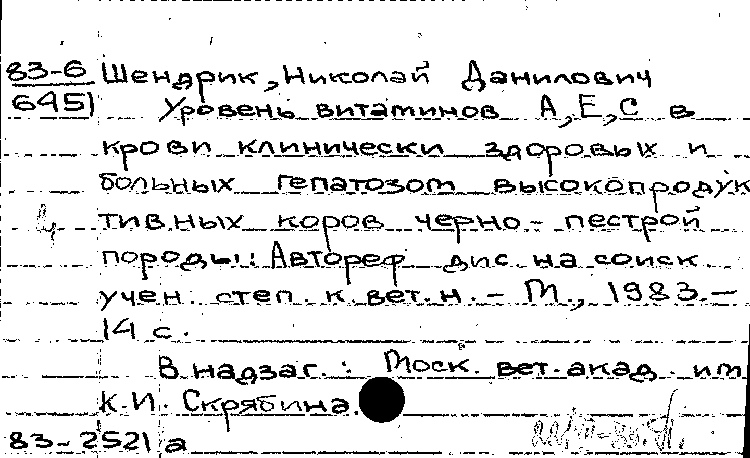 83-6 Шендрик, Николай Данилович
6451 Уровень витаминов А, Е, С в
крови клинически здоровых и
больных гепатозом высокопродук
тивных коров черно-пестрой
породы: Автореф дис. на соиск
учен. степ. к. вет. н. - М., 1983.-
14 с.
В надзаг.: Моск. вет. акад. им
К.И. Скрябина.
83-2521 а